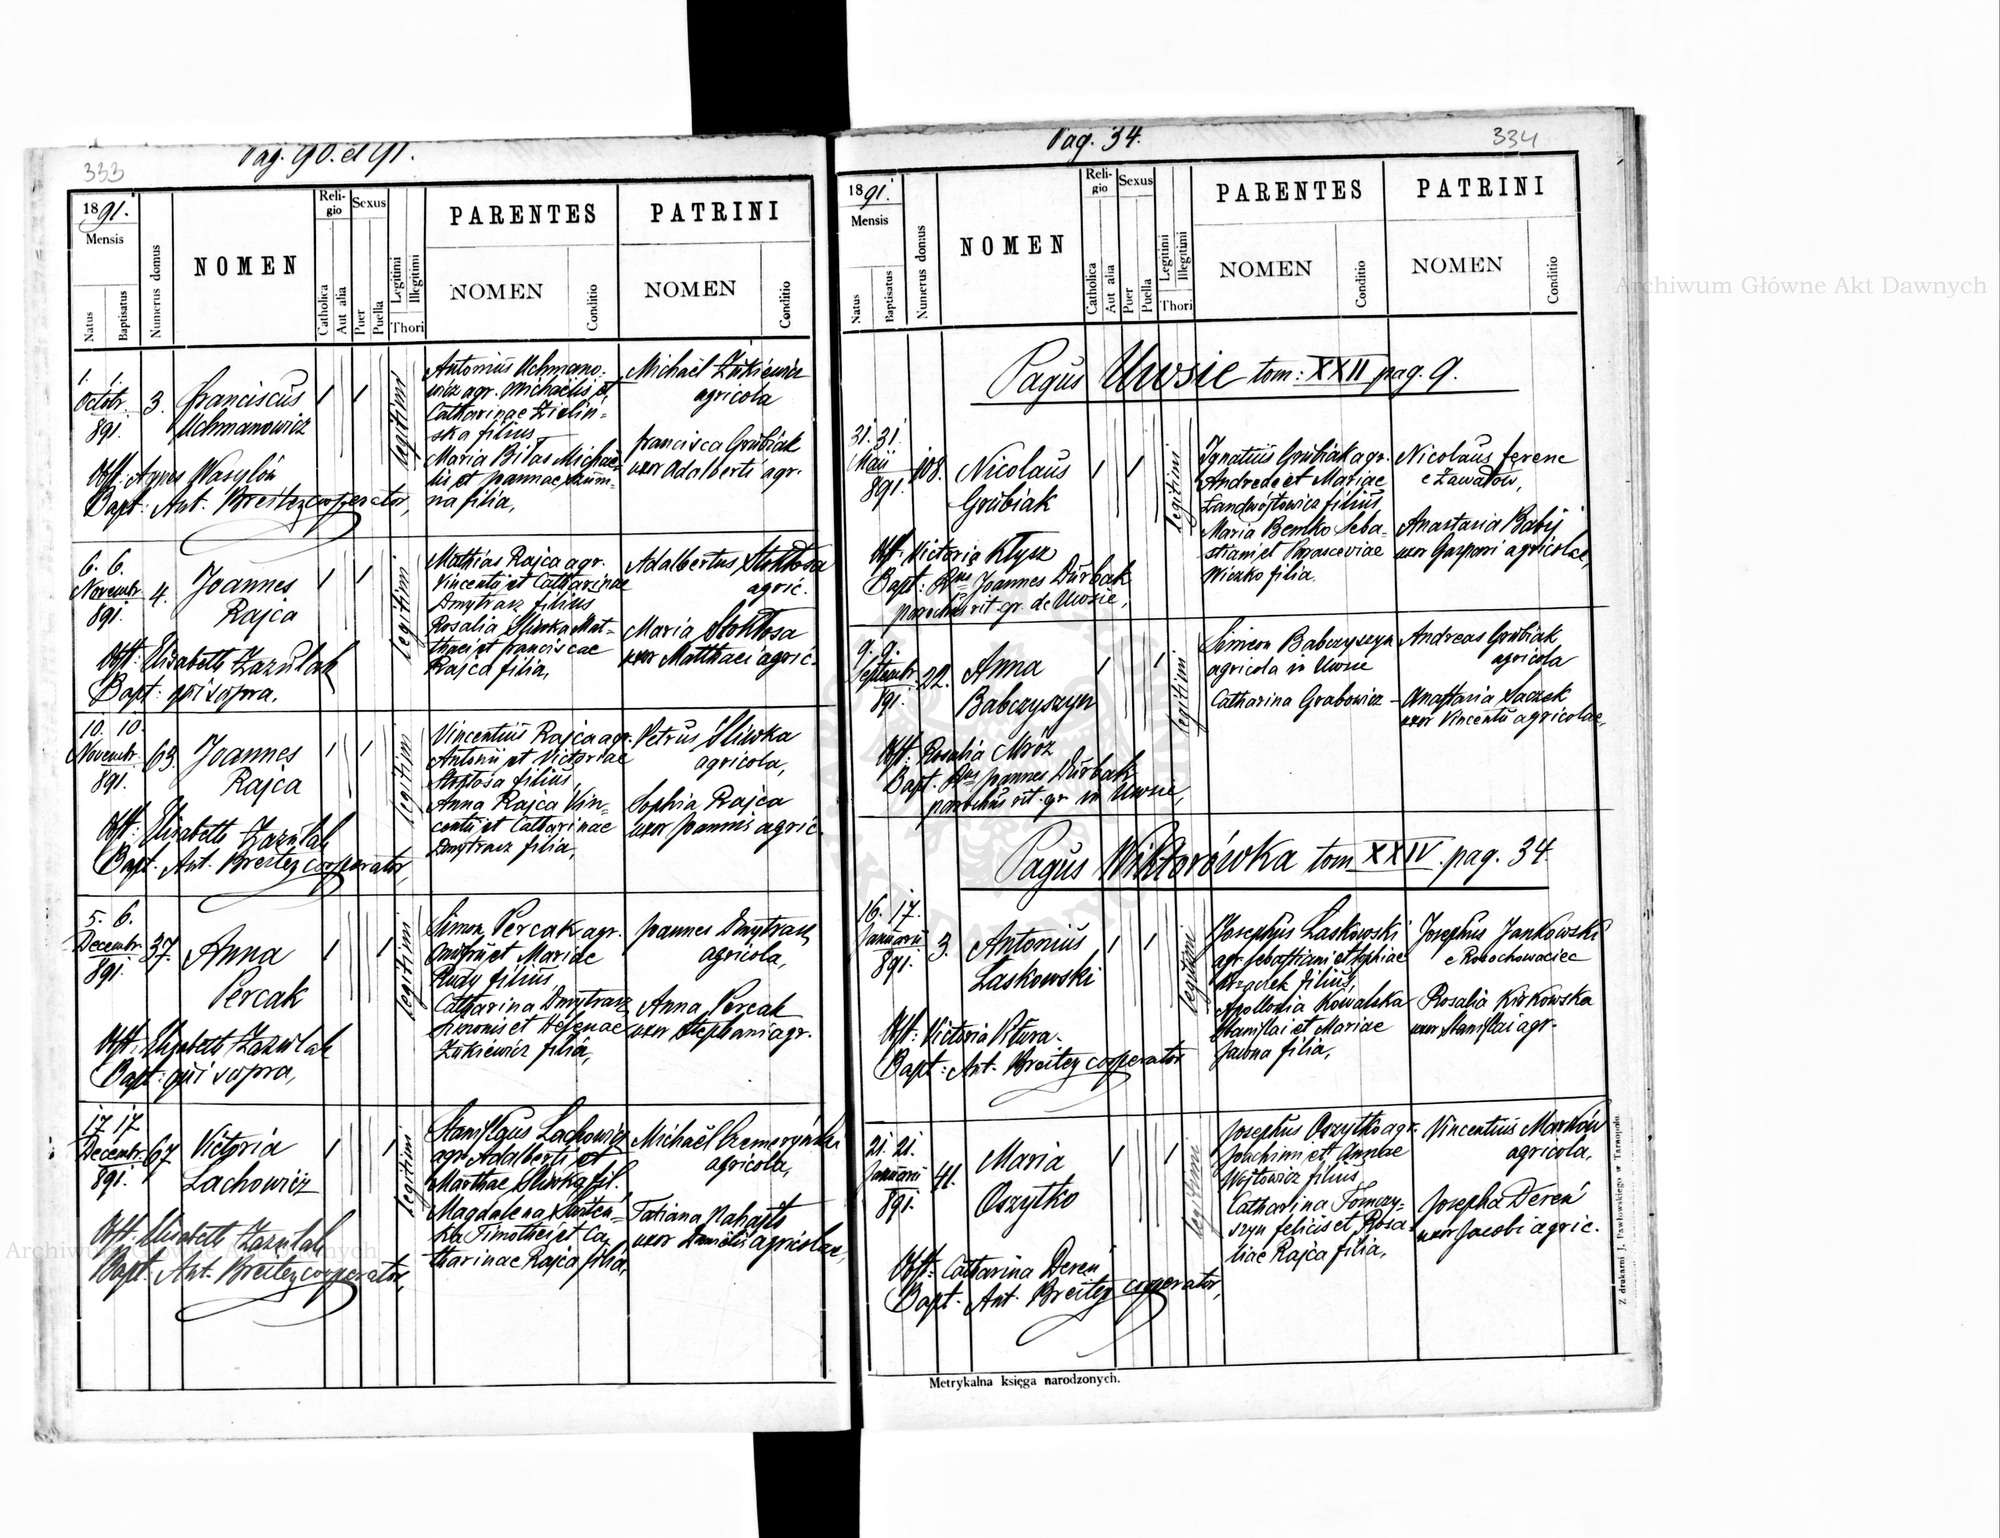 333
Pag. 90. et 91.
1891.
Mensis
Natus
Baptisatus
Numerus domus
NOMEN
Reli-
gio
Catholica
Aut alia
Sexus
Puer
Puella
Legitimi
Illegitimi
Thori
PARENTES
NOMEN
Conditio
PATRINI
NOMEN
Conditio
1. 1.
Octobr.
891.
3.
Franciscus
Uchmanowicz
legitimi
Antonius Uchmano-
wicz agr. Michaelis et
Catharinae Zielin-
ska filius
Maria Bilas Michae-
lis et Joannae
na filia,
Michaël Żukiewicz
agricola
Francisca Grubiak
uxor Adalberti agr.
Obst: Agnes Wasylów
Bapt: Ant. Breitez cooperator,
6. 6.
Novembr.
891.
4.
Joannes
Rajca
legitimi
Mathias Rajca agr.
Vincentii et Catharinae
Dmytrasz filius
Rosalia Śliwka Mat-
thaei et Franciscae
Rajca filia,
Adalbertus Stokłosa
agric.
Maria Stokłosa
uxor Matthaei agric.
Obst: Elisabeth Zazulak
Bapt: qui supra.
10. 10.
Novembr.
891.
63.
Joannes
Rajca
legitimi
Vincentius Rajca agr.
Antonii et Victoriae
filius,
Anna Rajca Vin-
centii et Catharinae
Dmytrasz filia,
Petrus Śliwka
agricola,
Sophia Rajca
uxor Joannis agric.
Obst: Elisabeth Zazulak
Bapt. Ant. Breitez cooperator,
5. 6.
Decembr.
891.
37.
Anna
Percak
legitimi
Simon Percak agr.
et Mariae
Rudy filius,
Catharina Dmytrasz
et Helenae
Żukiewicz filia,
Joannes Dmytrasz
agricola,
Anna Percak
uxor Stephani agr.
Obst: Elisabeth Zazulak
Bapt: qui supra,
17. 17.
Decembr.
891.
67.
Victoria
Lachowicz
legitimi
Stanislaus Lachowicz
agr. Adalberti et
Marthae Śliwka fil.
Magdalena
Timothei et Ca-
tharinae Rajca filia,
Michaël
agricola,
Tatiana
uxor Danielis agricolae,
Obst: Elisabeth Zazulak
Bapt. Ant. Breitez cooperator,
334
Pag. 34.
1891.
Mensis
Natus
Baptisatus
Numerus domus
NOMEN
Reli-
gio
Catholica
Aut alia
Sexus
Puer
Puella
Legitimi
Illegitimi
Thori
PARENTES
NOMEN
Conditio
PATRINI
NOMEN
Conditio
Pagus Uwsie tom: XXII pag. 9.
31. 31.
Maii
891.
108.
Nicolaus
Grubiak
legitimi
Ignatius Grubiak agr.
Andreae et Mariae
Landwójtowicz filius,
Maria Bemko Seba-
stiani et Parasceviae
Wiczko filia.
Nicolaus Ferenc
e Zawałów,
Anastasia Babij
uxor Gaspari agricolae,
Obst: Victoria Kłysz
Bapt: Rus Joannes Durbak
parochus rit. gr. de Uwsie,
9. 9.
Septembr.
891.
22.
Anna
Babczyszyn
legitimi
Simeon Babczyszyn
agricola in Uwsie
Catharina Grabowicz -
Andreas Grubiak
agricola
Anastasia Saczek
uxor Vincentii agricolae,
Obst: Rosalia Mróz
Bapt. Rus Joannes Durbak
parochus rit. gr. in Uwsie,
Pagus Wiktorówka tom XXIV. pag. 34.
16. 17.
Januarii
891.
3.
Antonius
Laskowski
legitimi
Josephus Laskowski
agr. Sebastiani et Sophiae
filius,
Apollonia Kowalska
Stanislai et Mariae
Jawna filia,
Josephus Jankowski
e Rosochowaciec
Rosalia Kirkowska
uxor Stanislai agr.
Obst: Victoria Ptura.
Bapt: Ant. Breitez cooperator
21. 21.
Januarii
891.
41.
Maria
Oszytko
legitimi
Josephus Oszytko agr.
Joachimi et Annae
Wojtowicz filius
Catharina Tomczy-
szyn Felicis et Rosa-
liae Rajca filia,
Vincentius Marków
agricola,
Josepha Dereń
uxor Jacobi agric.
Obst: Catharina Dereń
Bapt. Ant. Breitez cooperator,
Metrykalna księga narodzonych.
Z drukarni J. Pawłowskiego w Tarnopolu.
Archiwum Główne Akt Dawnych
Archiwum Główne Akt Dawnych